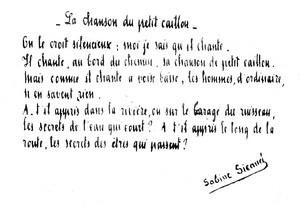 - La chanson du petit caillou -
On le croit silencieux ; moi je sais qu'il chante.
Il chante, au bord du chemin, sa chanson de petit caillou.
Mais comme il chante à voix basse, les hommes, d'ordinaire,
n'en savent rien.
A. t'il appris dans la rivière, ou sur le barage du ruisseau,
les secrets de l'eau qui court ? A t'il appris le long de la
route, les secrets des êtres qui passent ?
Sabine